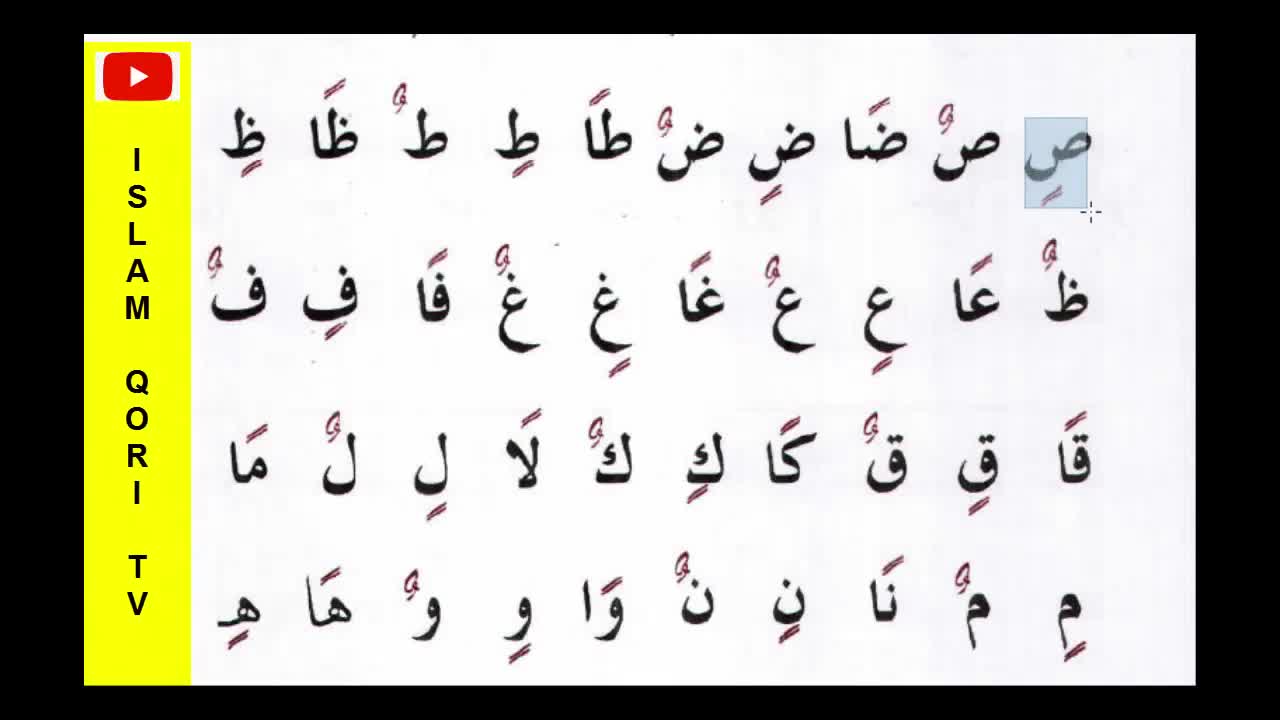 ISLAM QORI TV
صٍ صٌ ضًا ضٍ ضٌ طًا طٍ طٌ ظًا ظٍ
ظٌ عًا عٍ عٌ غًا غٍ غٌ فًا فٍ فٌ
قًا قٍ قٌ كًا كٍ كٌ لًا لٍ لٌ مًا
مٍ مٌ نًا نٍ نٌ وًا وٍ وٌ هًا هٍ